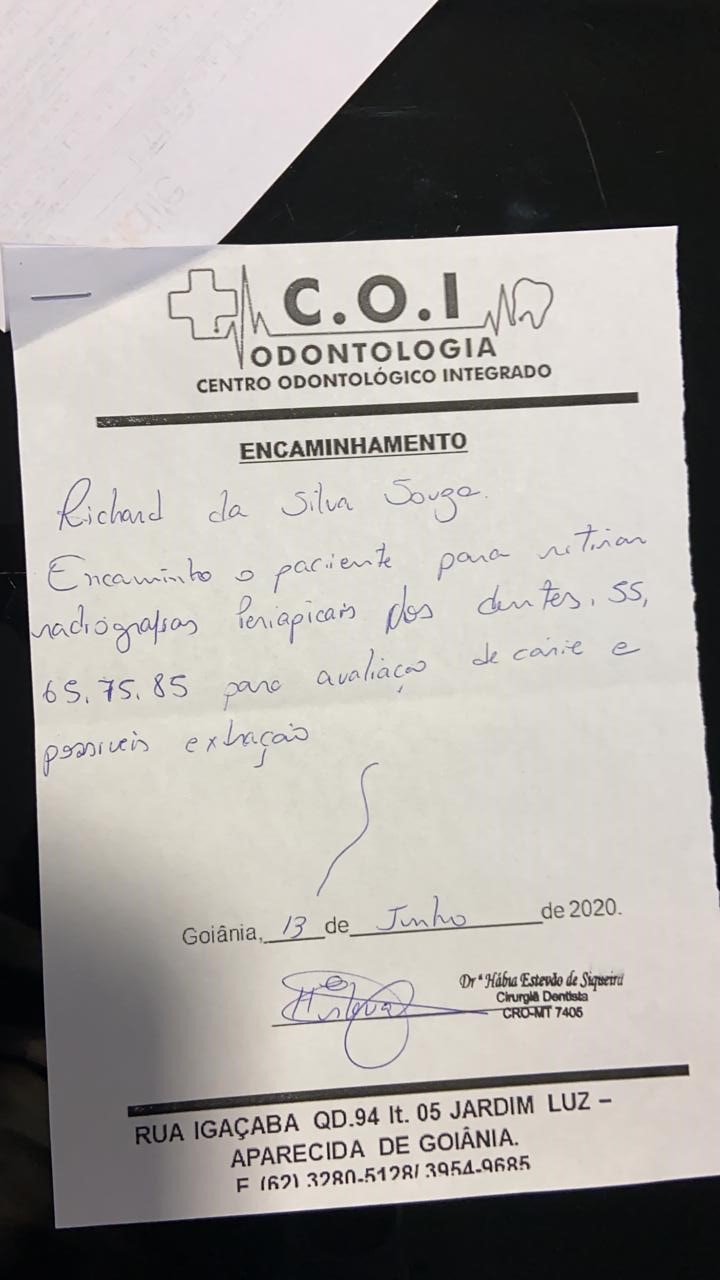 C.O.I
ODONTOLOGIA
CENTRO ODONTOLÓGICO INTEGRADO
ENCAMINHAMENTO
Richard da Silva Souza.
Encaminho o paciente para retirar
radiografias Periapicais dos dentes. 55,
65, 75, 85 para avaliação de cárie e
possiveis extração
Goiânia, 13 de Junho de 2020.
Drª Hábia Estevão de Siqueira
Cirurgiã Dentista
CRO-MT 7405
RUA IGAÇABA QD.94 lt. 05 JARDIM LUZ –
APARECIDA DE GOIÂNIA.
F (62) 3280-5128/ 3954-9685